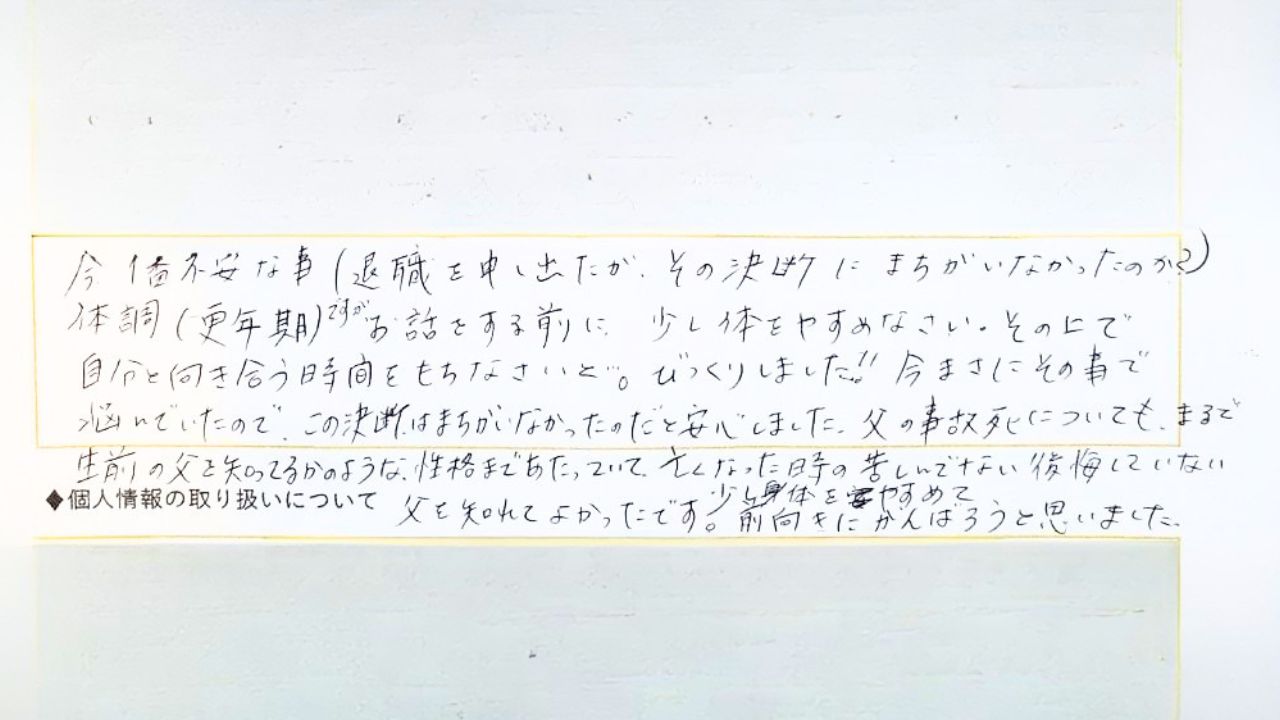 今一番不安な事(退職を申し出たが、その決断にまちがいなかったのか?)
体調(更年期)ですがお話をする前に、少し体をやすめなさい。その上で
自分と向き合う時間をもちなさいと…。びっくりしました!! 今まさにその事で
悩んでいたので、この決断はまちがいなかったのだと安心しました。父の事故死についても、まるで
生前の父を知ってるかのような、性格まであたっていて、亡くなった時の苦しんでない後悔していない
◆個人情報の取り扱いについて
父を知れてよかったです。少し身体をやすめて
前向きにがんばろうと思いました。